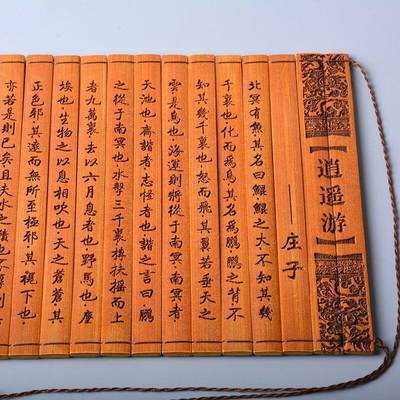 【逍遥游】
——庄子
北冥有魚其名曰鯤鯤之大·不知其幾
千裏也化而爲鳥其名爲鵬鵬之背·不
知其幾千裏也·怒而飛其翼若垂天之
雲是鳥也·海運則將從于南冥南冥者·
天池也·齊諧者·志怪者也諧之言曰·鵬
之從于南冥也·水擊三千裏摶扶搖而上
者九萬裏去以六月息者也野馬也塵
埃也生物之以息相吹也天之蒼蒼其
正色邪·其遠而無所至極邪·其視下也·
亦若是則已矣且夫水之積也不厚則